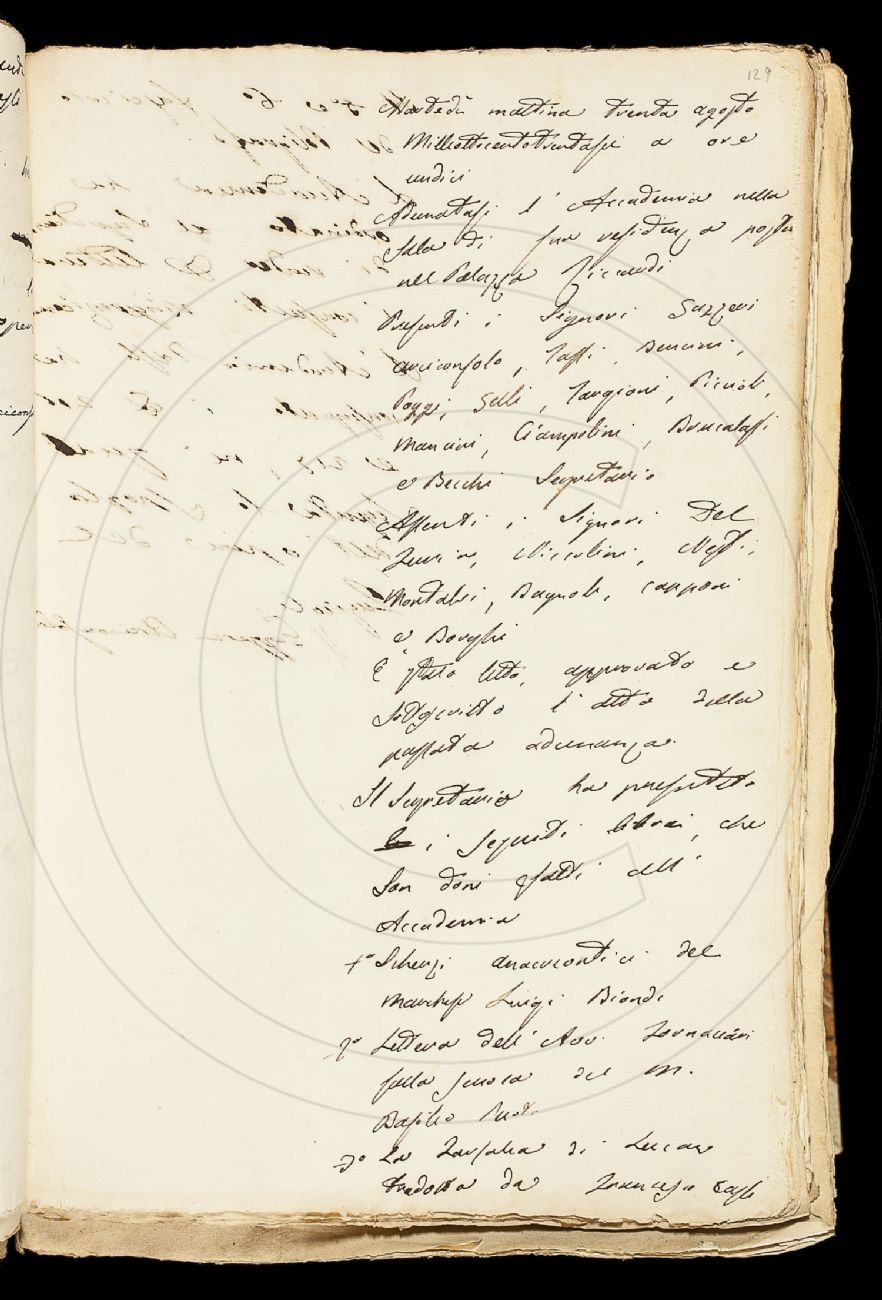 129
Martedì mattina trenta agosto
Milleottocentotrentasei a ore
undici
Adunatasi l'Accademia nella
Sala di sua residenza posta
nel Palazzo Riccardi
Presenti i Signori Gazzeri
arciconsolo, Tassi, Bencini,
Poggi, Gelli, Targioni, Piccioli,
Mancini, Ciampolini, Brucalassi
e Becchi Segretario
Assenti i Signori Del
Furia, Niccolini, Nesti,
Montalvi, Bagnoli, Capponi
e Borghi
È stato letto, approvato e
sottoscritto l'atto della
passata adunanza.
Il Segretario ha presentato
i seguenti libri, che
son doni fatti all'
Accademia
1º Scherzi anacreontici del
Marchese Luigi Biondi
2º Lettera dell'Avv. Fornaciari
sulla scuola del M.
Basilio Puoti
3º La Farsalia di Lucano
tradotta da Francesco Cassi